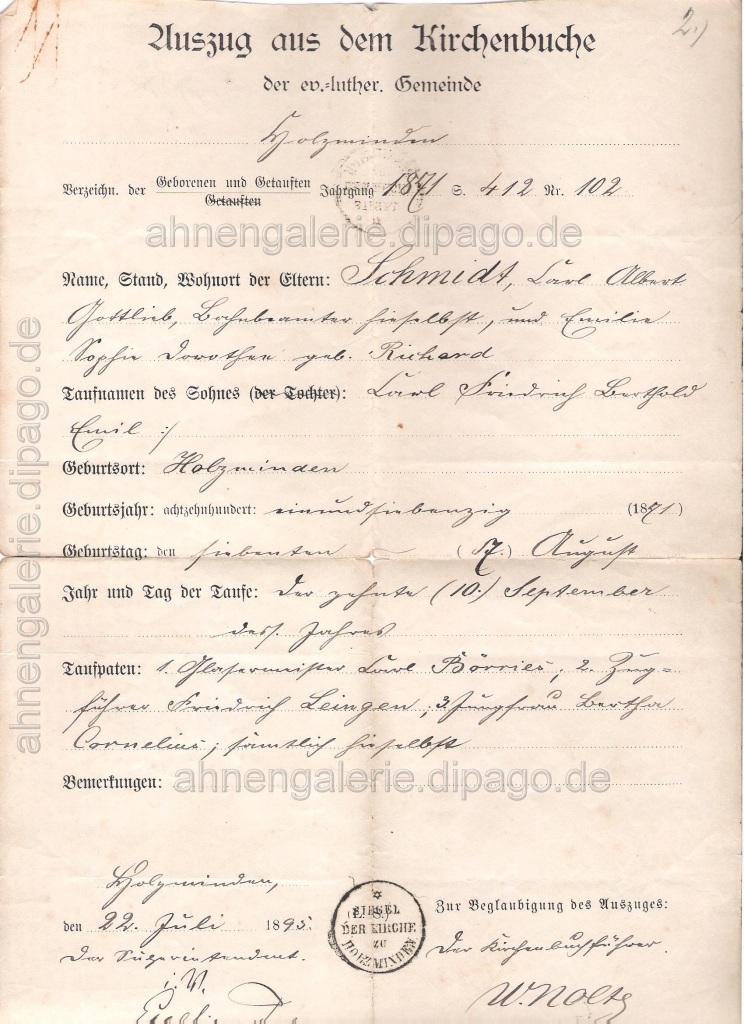 2.)
Auszug aus dem Kirchenbuche
der ev.-luther. Gemeinde
Holzminden
Verzeichn. der Geborenen und Getauften Jahrgang 1871 S. 412 Nr. 102
Getauften
ahnengalerie.dipago.de
Name, Stand, Wohnort der Eltern: Schmidt, Carl Albert
Gottlieb, Bahnbeamter hieselbst, und Emilie
Sophie Dorothee geb. Richard
Taufnamen des Sohnes (der Tochter): Carl Friedrich Berthold
Emil :/
Geburtsort: Holzminden
Geburtsjahr: achtzehnhundert: einundsiebenzig (1871)
Geburtstag: den siebenten (7.) August
Jahr und Tag der Taufe: Der zehnte (10.) September
dess. Jahres
Taufpaten: 1. Glasermeister Carl Börries, 2. Zug-
führer Friedrich Leingen; 3. Jungfrau Bertha
Cornelius; sämtlich hieselbst
Bemerkungen:
ahnengalerie.dipago.de
ahnengalerie.dipago.de
Holzminden,
den 22. Juli 1895.
Der Superintendent.
i. V.
(L. S.)
SIEGEL
DER KIRCHE
ZU
HOLZMINDEN
Zur Beglaubigung des Auszuges:
Der Kirchenbuchführer.
W. Nolte